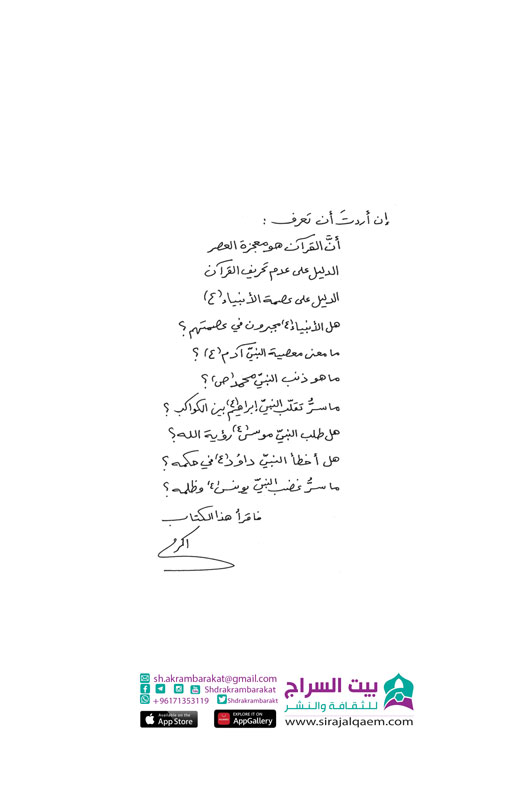 إن أردتَ أن تَعرف :
أنَّ القرآن هو معجزة العصر
الدليل على عدم تحريف القرآن
الدليل على عصمة الأنبياء (ع)
هل الأنبياء (ع) مجبرون في عصمتهم ؟
ما معنى معصية النبيّ آدم (ع) ؟
ما هو ذنب النبيّ محمد (ص) ؟
ما سرُّ تقلّب النبيّ إبراهيم (ع) بين الكواكب ؟
هل طلب النبيّ موسى (ع) رؤية الله ؟
هل أخطأ النبيّ داوُد (ع) في حكمه ؟
ما سرُّ غضب النبيّ يونس (ع) وظلمه ؟
فاقرأ هذا الكتاب
اكرم
sh.akrambarakat@gmail.com
Shdrakrambarakat
+96171353119 Shdrakrambarakt
Available on the App Store
EXPLORE IT ON AppGallery
بيت السراج
للثقافة والنشر
www.sirajalqaem.com